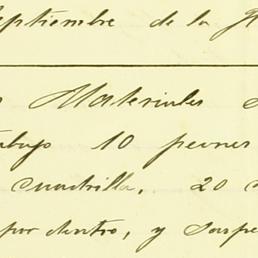 Septiembre de la
Materiales
10 peones
cuadrilla, 20
por dentro, y